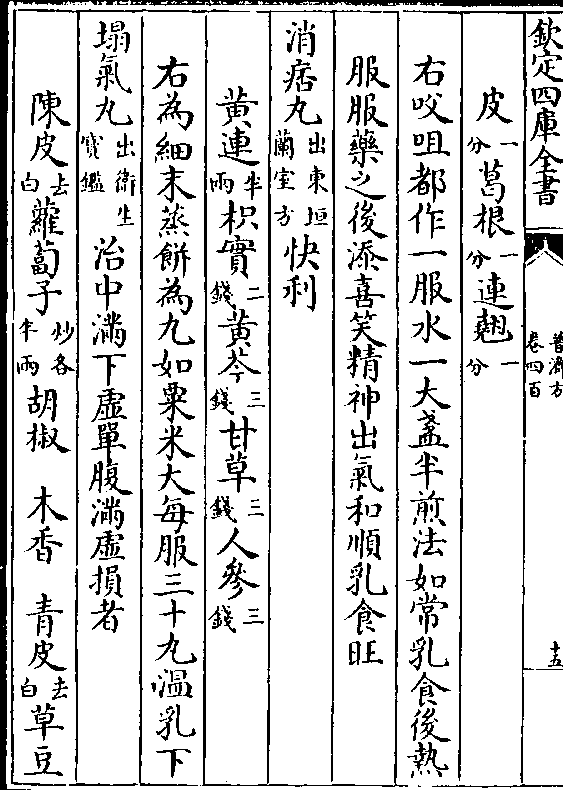 欽定四庫全書
普濟方
卷四百
十五
皮一分葛根一分連翹一分
右㕮咀都作一服水一大盞半煎法如常乳食後熱
服服藥之後添喜笑精神出氣和順乳食旺
消痞丸出東垣蘭室方快利
黄連半兩枳實二錢黄芩三錢甘草三錢人參三錢
右為細末蒸餅為丸如粟米大每服三十丸溫乳下
塌氣丸出衛生寳鑑治中滿下虛單腹滿虛損者
陳皮去白蘿蔔子炒各半兩胡椒 木香 青皮去白草豆